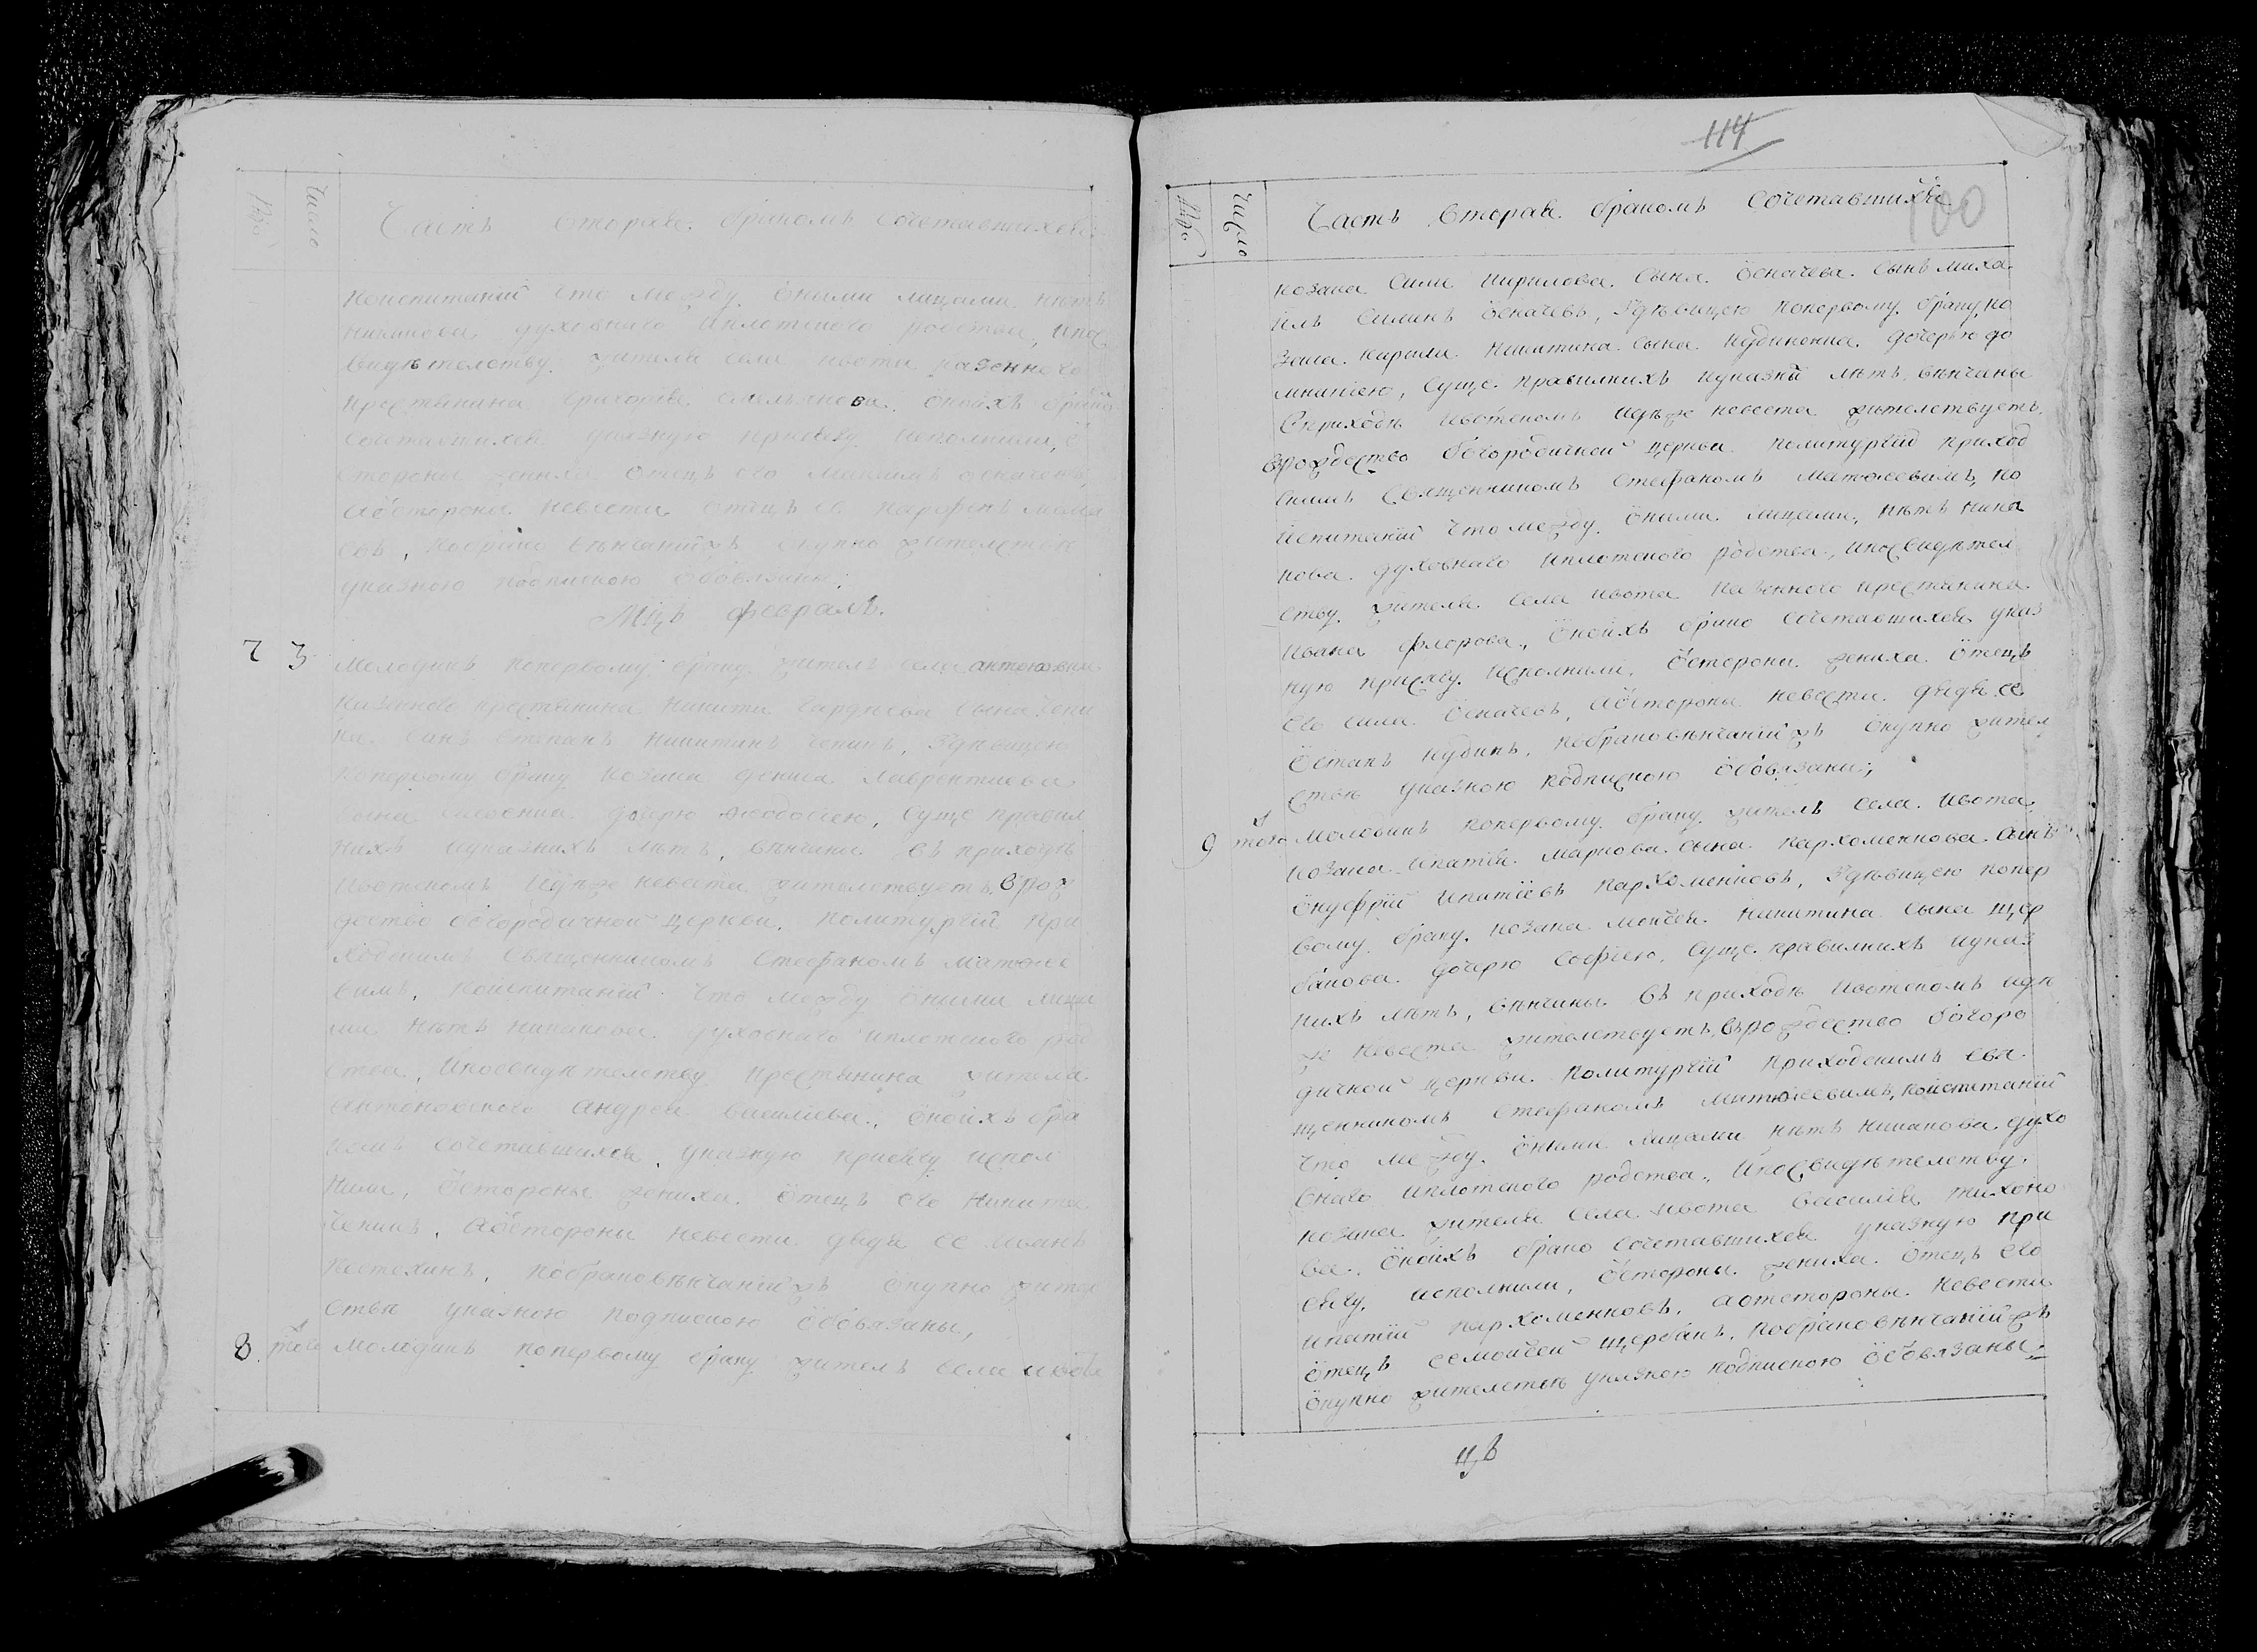 Число
Часть вторая. бракомъ сочетавшихся.
поиспитаніи что между оными лицами нѣтъ
никакова духовнаго иплотского родства, ипос
видѣтелству жителя села ивота казенного
крестянина григорія емельянова. оноихъ бракъ
сочетавшихся указную присягу исполнили, ѿ
стороны жениха отецъ его максимъ осначевъ,
аѿстороны невести отецъ ее
побракѣ вѣнчаніи жъ вкупно жителств
указною подпискою обовязани.
Мцъ февраль.
7 3 Молодикъ поперьвому браку жителъ села антоновки
казеного крестянина никити сына чепи
на. синъ степанъ никитинъ чепинъ, здѣвицею
поперьвому браку козака дениса лаврентиева
сына дочерю феодосіею, суще правил
нихъ иуказнихъ лѣтъ, вѣнчани въ приходѣ
ивотскомъ идѣже невеста жителствуетъ, врож
дество богородичной церкви, политургіи при
ходскимъ священникомъ стефаномъ матфее
вимъ, поиспитаніи что между оними лица
ми нѣтъ никакова духовнаго иплотского род
ства, ипосвидѣтелству крестянина жителя
антоновского андрея василиева, оноихъ бра
комъ сочетавшихся указную присягу испол
нили, ѿстороны жениха отецъ его никита
чепинъ, аѿстороны невести дядя ее иванъ
костюхинъ, побраковѣнчаніи жъ вкупно жител
ства указною подпискою обовязаны,
8 того молодикъ поперьвому браку жителъ села ивота
114
100
Число
Часть вторая. бракомъ сочетавшихся
козака сили кирилова. сына. осначева. синъ миха
илъ силинъ осначевъ, здѣвицею поперьвому браку, ко
зака. карпа. никитина. сына. кудикова. дочерью до
мникіею, суще. правилнихъ иуказнихъ лѣтъ. вѣнчаны
вприходѣ ивотскомъ идѣже невеста жителствуетъ.
врождество богородичной церкви политургіи приход
скимъ священникомъ стефаномъ матфеевимъ, по
испитаніи что между. оными. лицами, нѣтъ ника
кова. духовнаго иплотского родства, ипосвидѣтел
ству. жителя села ивота казенного крестянина
ивана флорова, оноихъ бракѣ сочетавшихся указ
ную присягу. исполнили, ѿстороны. жениха. отецъ
его сила. осначевъ, аѿстороны невести. дядя ее
остапъ кудинъ, побраковѣнчаніи жъ вкупно жител
ствѣ указною подпискою обовязани,
9 того Молодикъ поперьвому. браку. жителъ села. ивота,
козака. ипатія. маркова. сына. пархоменкова. синъ
онуфрій ипатіевъ пархоменковъ, здѣвицею попер
вому. браку, козака моисея. никитина сына щер
бакова. дочерю софіею. суще. правилнихъ иуказ
нихъ лѣтъ, вѣнчаны въ приходѣ ивотскомъ идѣ
же невеста жителствуетъ, врождество богоро
дичной церкви. политургіи приходскимъ свя
щенникомъ стефаномъ матфеевимъ, поиспитаніи
что между. оними. лицами нѣтъ никакова. духо
внаго иплотского родства, ипосвидѣтелству.
козака жителя села ивота василія тихоно
ва. оноихъ бракѣ сочетавшихся указную при
сягу. исполнили, ѿстороны. жениха. отецъ его
ипатій пархоменковъ, аѿстороны. невести
отецъ ее моисей щербакъ, побраковѣнчаніи жъ
вкупно жителствѣ указною подпискою обовязаны.